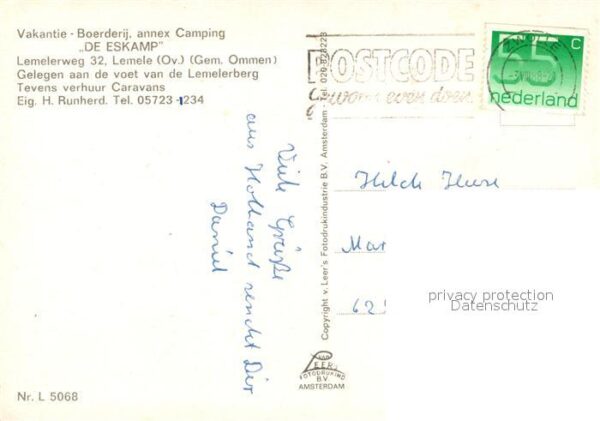 Vakantie - Boerderij, annex Camping
„DE ESKAMP"
Lemelerweg 32, Lemele (Ov.) (Gem. Ommen)
Gelegen aan de voet van de Lemelerberg
Tevens verhuur Caravans
Eig. H. Runherd. Tel. 05723-1234
Viele Grüße
aus Holland sendet Dir
Daniel
Copyright v. Leer's Fotodrukindustrie B.V. Amsterdam - Tel. 020-828223
POSTCODE
gewoon even doen
55 c
nederland
Hilde
Mar
62
privacy protection
Datenschutz
VAN
LEER'S
FOTODRUKIND
B.V.
AMSTERDAM
Nr. L 5068